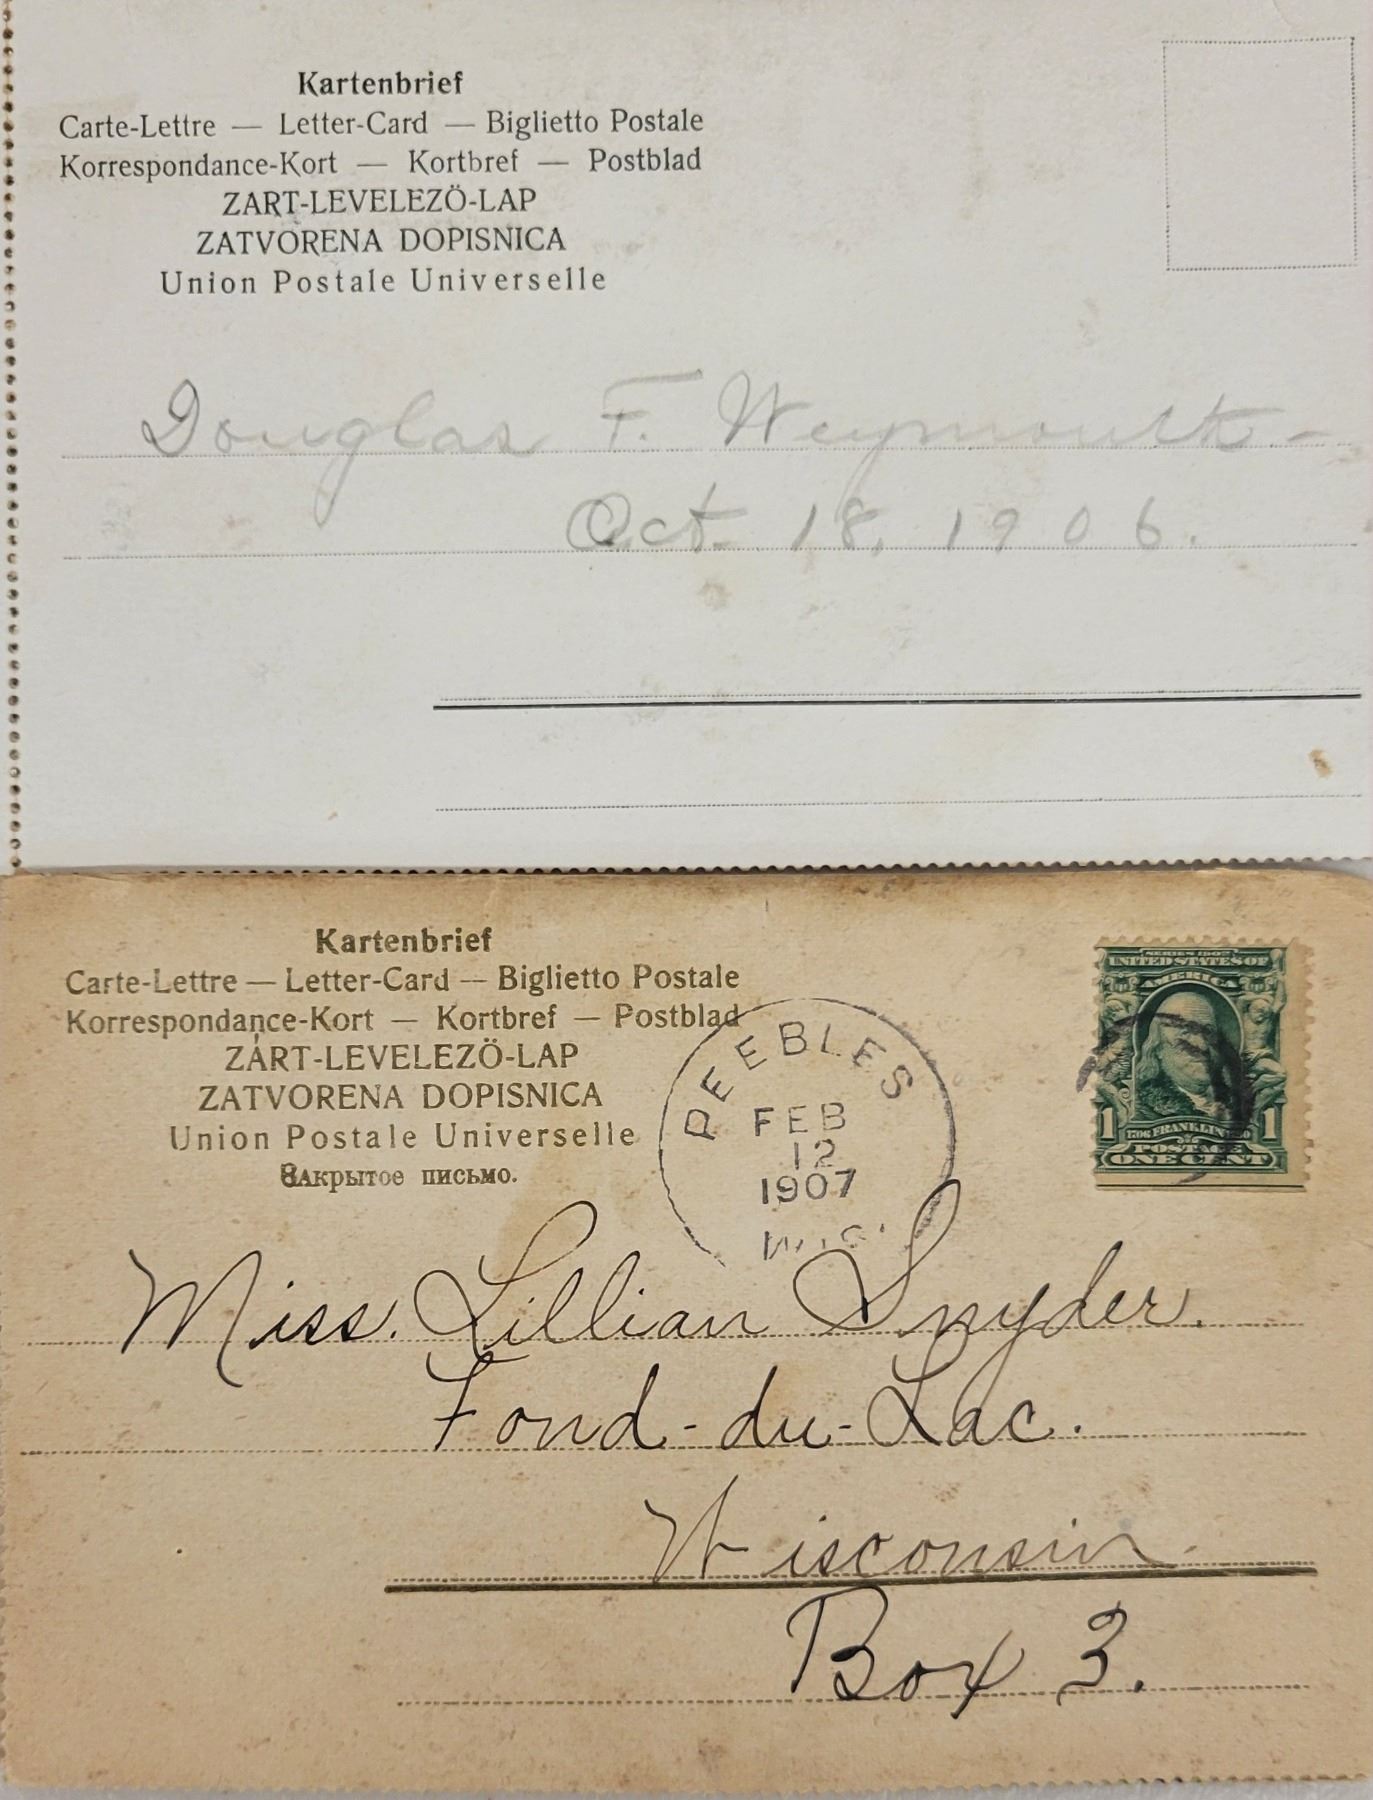 Kartenbrief
Carte-Lettre — Letter-Card — Biglietto Postale
Korrespondance-Kort — Kortbref — Postblad
ZART-LEVELEZÖ-LAP
ZATVORENA DOPISNICA
Union Postale Universelle
Douglas F. Weymouth -
Oct. 18, 1906.
Kartenbrief
Carte-Lettre — Letter-Card — Biglietto Postale
Korrespondance-Kort — Kortbref — Postblad
ZÁRT-LEVELEZÖ-LAP
ZATVORENA DOPISNICA
Union Postale Universelle
Закрытое письмо.
PEEBLES
FEB
12
1907
WIS.
SERIES 1902
UNITED STATES OF
AMERICA
1 FRANKLIN 1
POSTAGE
ONE CENT
Miss. Lillian Snyder.
Fond-du-Lac.
Wisconsin.
Box 3.